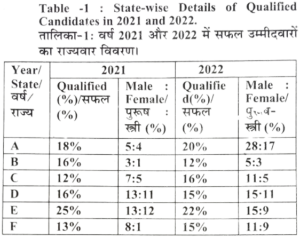 Table -1 : State-wise Details of Qualified
Candidates in 2021 and 2022.
तालिका-1: वर्ष 2021 और 2022 में सफल उम्मीदवारों
का राज्यवार विवरण।
Year/ 2021 2022
State/ Qualified Male : Qualifie Male :
वर्ष/ (%)/सफल Female/ d(%)/ Female/
राज्य (%) पुरूष : सफल पुरूष-
स्त्री (%) (%) स्त्री (%)
A 18% 5:4 20% 28:17
B 16% 3:1 12% 5:3
C 12% 7:5 16% 11:5
D 16% 13:11 15% 15:11
E 25% 13:12 22% 15:9
F 13% 8:1 15% 11:9